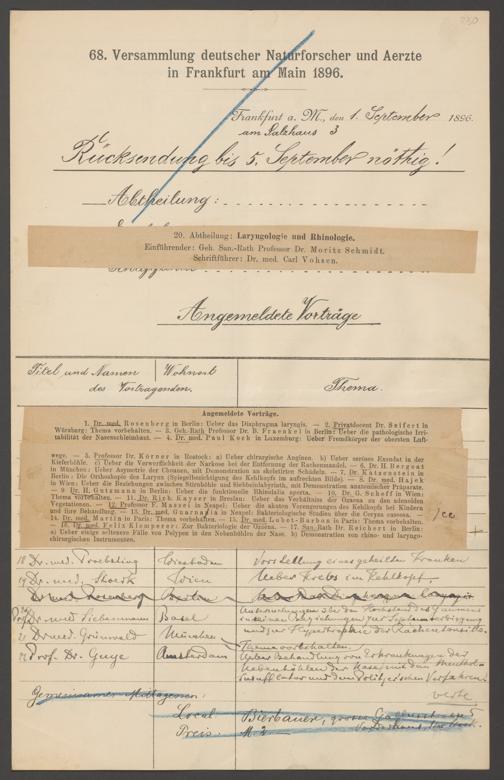 68. Versammlung deutscher Naturforscher und Aerzte
in Frankfurt am Main 1896.
Frankfurt a. M., den 1. September 1896.
am Salzhaus 3
Rücksendung bis 5. September nöthig!
Abtheilung:
20. Abtheilung: Laryngologie und Rhinologie.
Einführender: Geh. San.-Rath Professor Dr. Moritz Schmidt.
Schriftführer: Dr. med. Carl Vohsen.
Angemeldete Vorträge
Titel und Namen des Vortragenden.
Wohnort
Thema.
Angemeldete Vorträge.
1. Dr. med. Rosenberg in Berlin: Ueber das Diaphragma laryngis. — 2. Privatdocent Dr. Seifert in
Würzburg: Thema vorbehalten. — 3. Geh. Rath Professor Dr. B. Fraenkel in Berlin: Ueber die pathologische Irri-
tabilität der Nasenschleimhaut. — 4. Dr. med. Paul Koch in Luxemburg: Ueber Fremdkörper der obersten Luft-
wege. — 5. Professor Dr. Körner in Rostock: a) Ueber chirurgische Anginen. b) Ueber seröses Exsudat in der
Kieferhöhle. c) Ueber die Verwerflichkeit der Narkose bei der Entfernung der Rachenmandel. — 6. Dr. H. Bergeat
in München: Ueber Asymmetrie der Choanen, mit Demonstration an skeletirten Schädeln. — 7. Dr. Katzenstein in
Berlin: Die Orthoskopie des Larynx (Spiegelbesichtigung des Kehlkopfs im aufrechten Bilde). — 8. Dr. med. Hajek
in Wien: Ueber die Beziehungen zwischen Stirnhöhle und Siebbeinlabyrinth, mit Demonstration anatomischer Präparate.
— 9. Dr. H. Gutzmann in Berlin: Ueber die functionelle Rhinolalia aperta. — 10. Dr. G. Scheff in Wien:
Thema vorbehalten. — 11. Dr. Rich. Kayser in Breslau: Ueber das Verhalten des Ozaena zu den adenoiden
Vegetationen. — 12. Professor F. Massei in Neapel: Ueber die akuten Verengerungen des Kehlkopfs bei Kindern
und ihre Behandlung. — 13. Dr. med. Guarnaccia in Neapel: Bakteriologische Studien über die Coryza caseosa. —
14. Dr. med. Martin in Paris: Thema vorbehalten. — 15. Dr. med. Lubet-Barbon in Paris: Thema vorbehalten.
— 16. Dr. med. Felix Klemperer: Zur Bakteriologie der Ozaena. — 17. San.-Rath Dr. Reichert in Berlin:
a) Ueber einige seltenere Fälle von Polypen in den Nebenhöhlen der Nase. b) Demonstration von rhino- und laryngo-
chirurgischen Instrumenten.
18 Dr. med. Proebsting Wiesbaden Vorstellung eines geheilten Kranken
19 Dr. med. Stoerk Wien Ueber Krebs im Kehlkopf
Dr. med. Rosenberg Berlin
Prof. Dr. med. Siebenmann Basel Untersuchungen über den Hochstand des Gaumens
in seinen Beziehungen zur Septumverbiegung
und zur Hypertrophie der Rachentonsille.
21 Dr. med. Grünwald München Thema vorbehalten
22 Prof. Dr. Guye Amsterdam Ueber Behandlung von Erkrankungen der
Nebenhöhlen der Nase mit dem
und dem Politzer'schen Verfahren.
Gemeinsames Mittagessen:
Local: Bierbauer, grosse Gallusstrasse 5
Preis: M 2